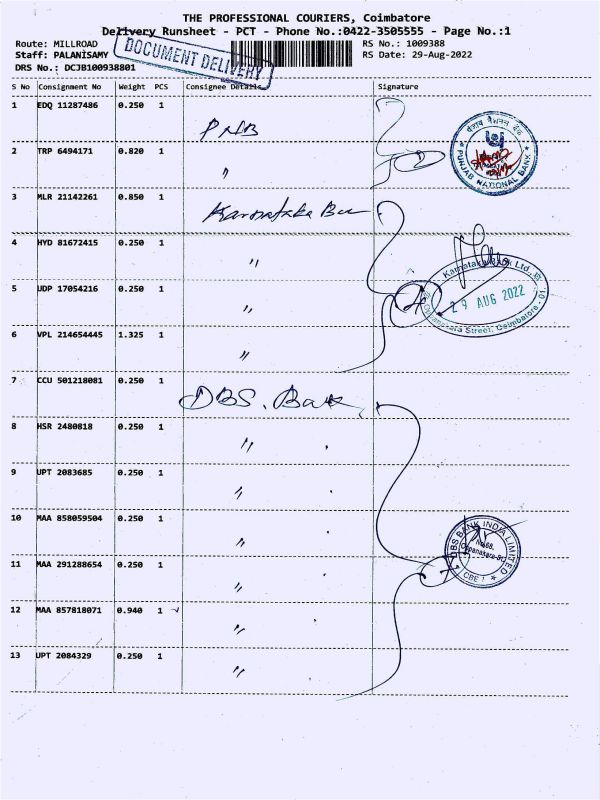 THE PROFESSIONAL COURIERS, Coimbatore
Delivery Runsheet - PCT - Phone No.:0422-3505555 - Page No.:1
Route: MILLROAD
RS No.: 1009388
Staff: PALANISAMY
RS Date: 29-Aug-2022
DRS No.: DCJB100938801
DOCUMENT DELIVERY
S No Consignment No Weight PCS Consignee Details Signature
1 EDQ 11287486 0.250 1 PNB
2 TRP 6494171 0.820 1 "
पंजाब नैशनल बैंक
PUNJAB NATIONAL BANK
3 MLR 21142261 0.850 1 Karnataka
4 HYD 81672415 0.250 1 "
5 UDP 17054216 0.250 1 "
Karnataka Bank Ltd.
29 AUG 2022
Street, Coimbatore - 01.
6 VPL 214654445 1.325 1 "
7 CCU 501218081 0.250 1 DBS. Bank
8 HSR 2480818 0.250 1 "
9 UPT 2083685 0.250 1 "
10 MAA 858059504 0.250 1 "
DBS BANK INDIA LIMITED
CBE 1
11 MAA 291288654 0.250 1 "
12 MAA 857818071 0.940 1 "
13 UPT 2084329 0.250 1 "